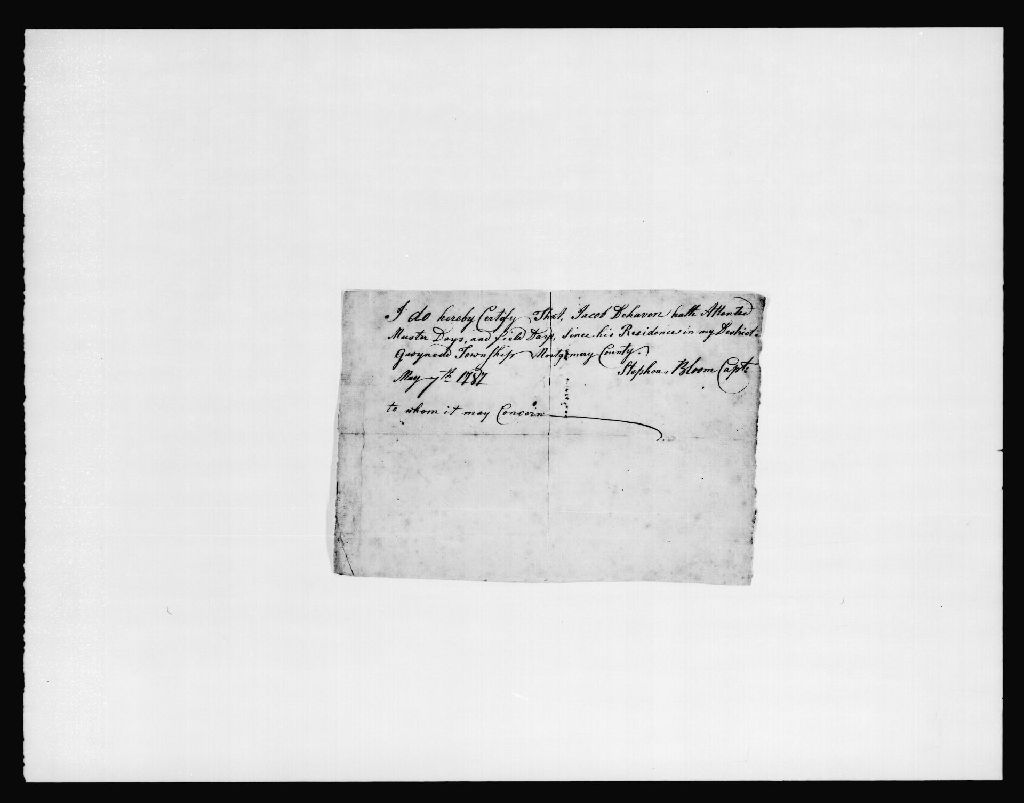 I do hereby Certify That Jacob Dehaven hath Attended
Muster Days, and field Days, Since his Residence in my District
Gwynedd Township Montgomay County.
Stephen Bloom Capt
May 7th 1787
to whom it may Concern